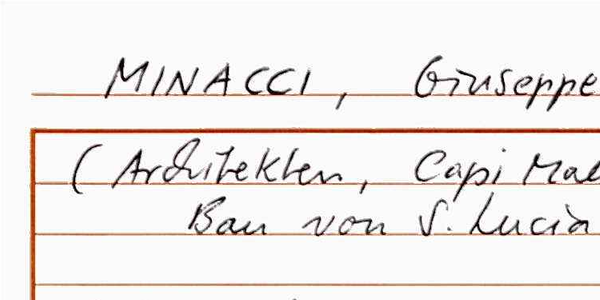 MINACCI, Giuseppe
(Architekten, Capi Mae
Bau von S. Lucia